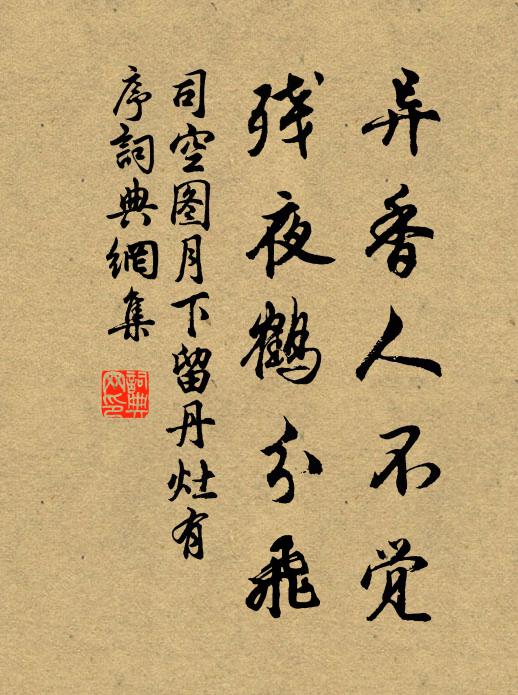 异香人不觉
残夜鹤分飛
司空图月下留丹灶有
序詞典網集
詞典网印